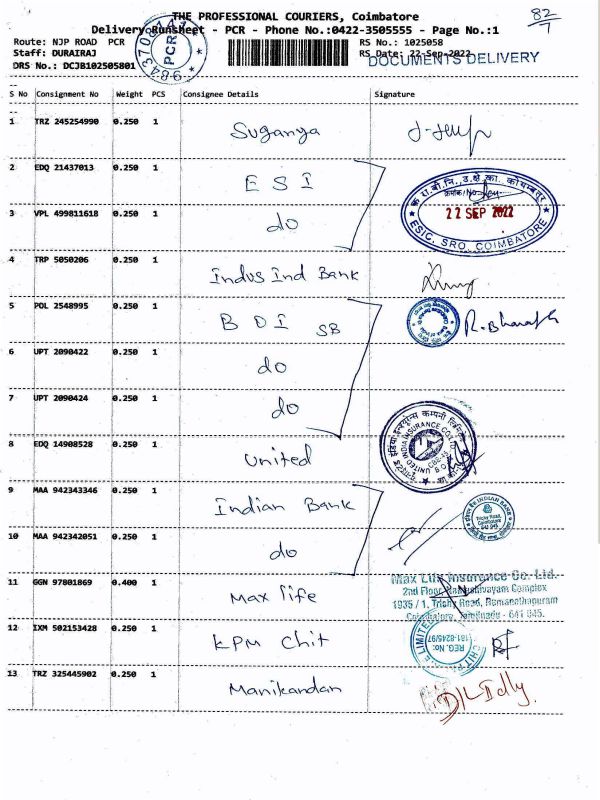 THE PROFESSIONAL COURIERS, Coimbatore
82/1
Delivery Runsheet - PCR - Phone No.:0422-3505555 - Page No.:1
Route: NJP ROAD PCR
RS No.: 1025058
Staff: DURAIRAJ
RS Date: 22-Sep-2022
DOCUMENTS DELIVERY
DRS No.: DCJB102505801
PCR
S No Consignment No Weight PCS Consignee Details Signature
1 TRZ 245254990 0.250 1 Suganya
2 EDQ 21437013 0.250 1 ESI
22 SEP 2022
ESIC, SRO, COIMBATORE
3 VPL 499811618 0.250 1 do
4 TRP 5050206 0.250 1 Indus Ind Bank
5 POL 2548995 0.250 1 BOI SB R. Bharath
6 UPT 2090422 0.250 1 do
7 UPT 2090424 0.250 1 do
8 EDQ 14908528 0.250 1 United
9 MAA 942343346 0.250 1 Indian Bank
INDIAN BANK
Trichy Road,
Coimbatore
641 045
10 MAA 942342051 0.250 1 do
11 GGN 97801869 0.400 1 Max life
Max Life Insurance Co. Ltd.
2nd Floor, Complex
1935 / 1, Trichy Road, Ramanathapuram
Coimbatore, Tamilnadu - 641 045.
12 IXM 502153428 0.250 1 KPM Chit
REG. No:
181-8245/97
13 TRZ 325445902 0.250 1 Manikandan